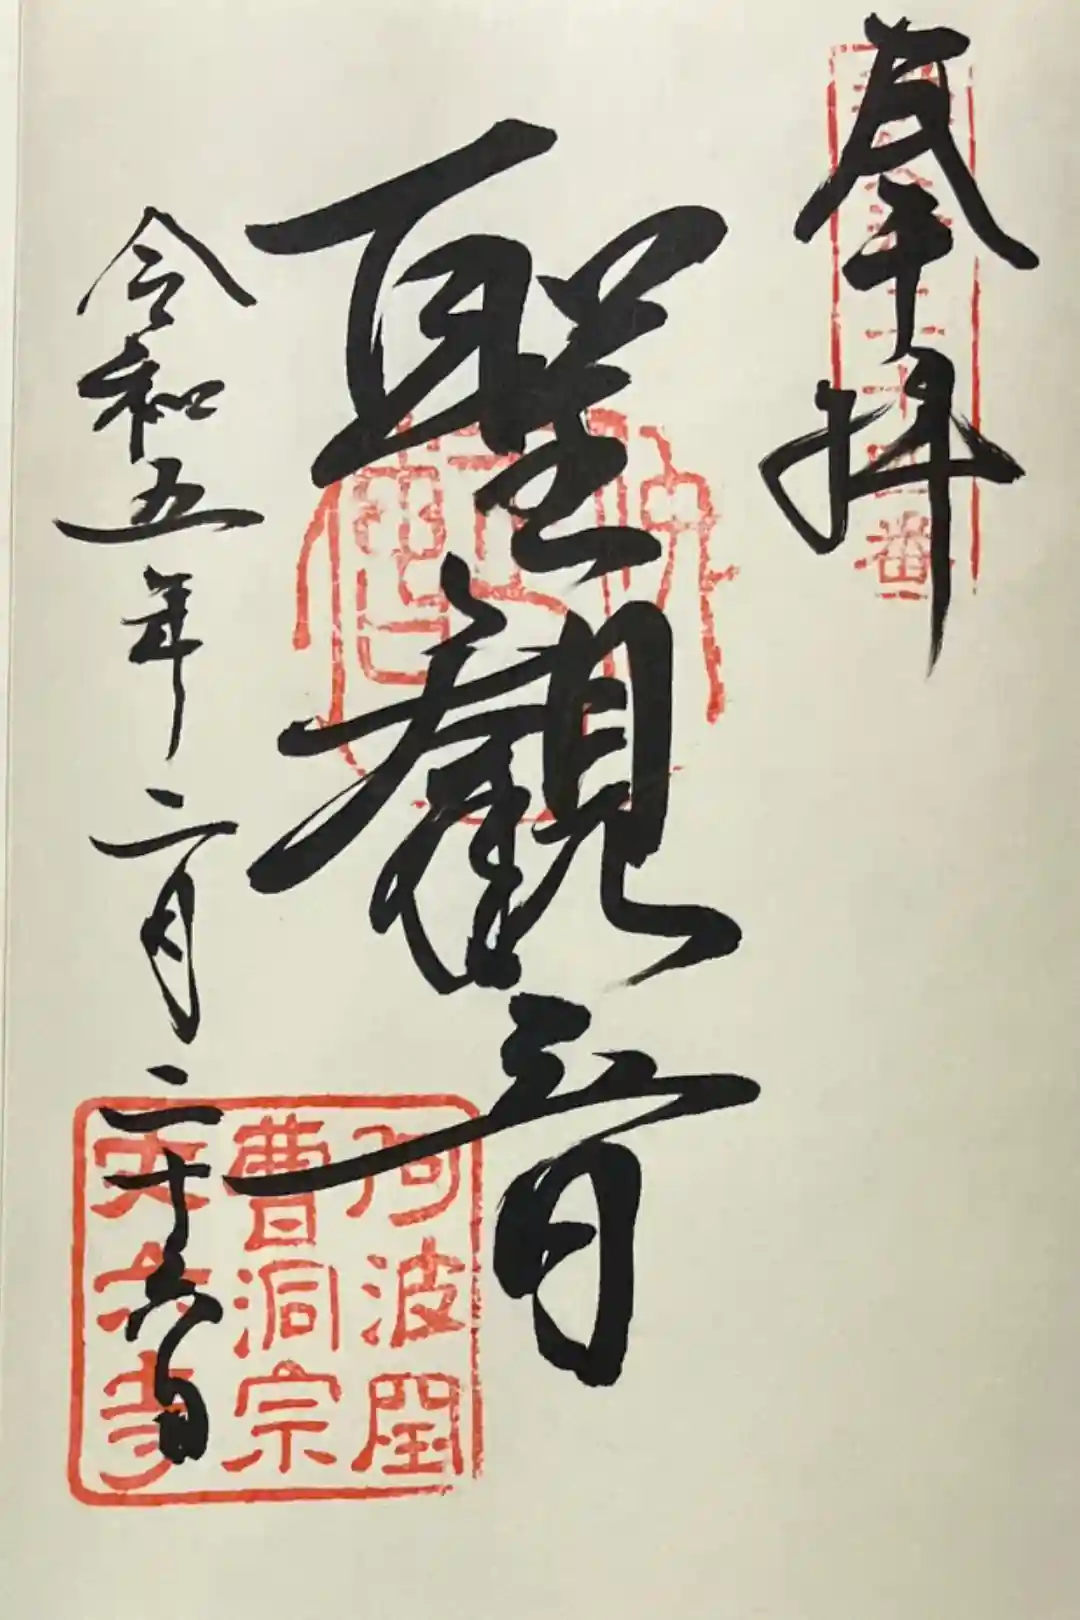 奉拝
聖觀音
令和五年二月二十六日
番
阿波国
曹洞宗
寺